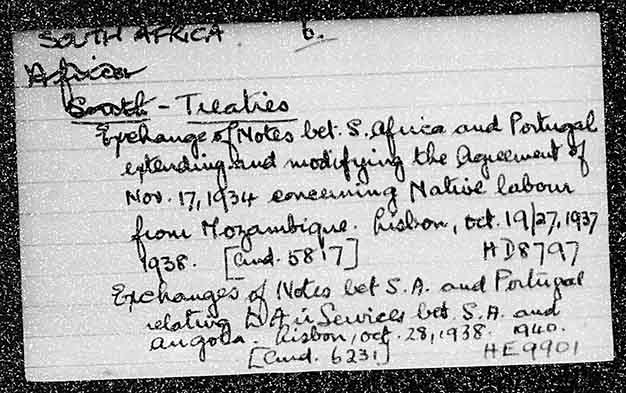 SOUTH AFRICA 6.
Africa
South - Treaties
Exchange of Notes bet. S. Africa and Portugal
extending and modifying the Agreement of
Nov. 17, 1934 concerning Native labour
from Mozambique. Lisbon, Oct. 19/27, 1937
1938. [Cmd. 5817] HD8797
Exchanges of Notes bet S.A. and Portugal
relating to Air Services bet. S.A. and
Angola. Lisbon, Oct. 28, 1938. 1940.
[Cmd. 6231] HE9901